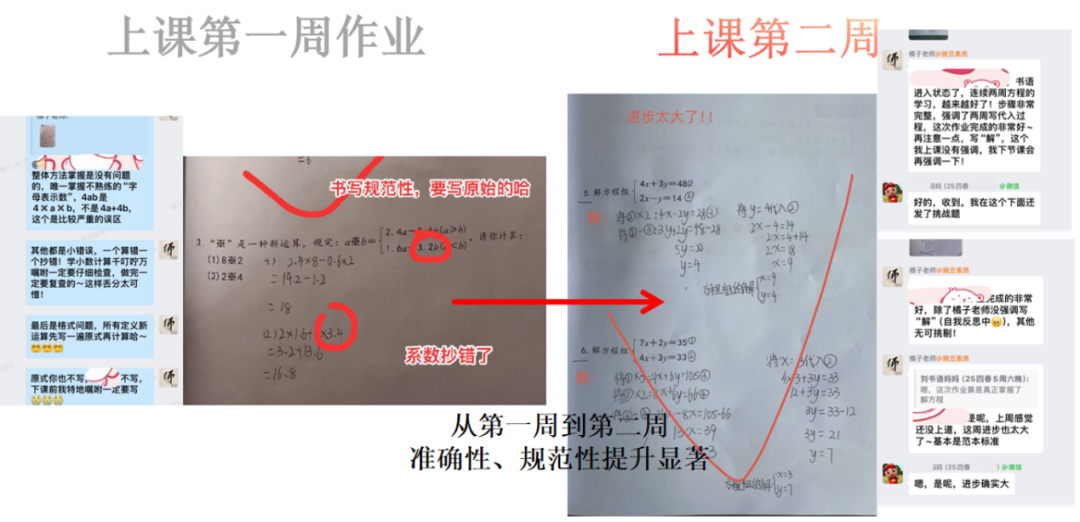 上课第一周作业
上课第二周
橘子老师:
整体方法掌握是没有问题
的，唯一掌握不熟练的“字
母表示数”，4ab是
4×a×b，不是4a+4b，
这个是比较严重的误区
其他都是小错误，一个算错一
个抄错！学小数计算千叮咛万
嘱咐一定要仔细检查，做完一
定要复查的～这样丢分太可
惜！
最后是格式问题，所有定义新
运算先写一遍原式再计算哈～
原式你也不写，
不写，
下课前我特地嘱咐一定要写
=6
书写规范性，要写原始的哈
3. “※”是一种新运算，规定：a※b=
2.4a-
b(a≥b)
1.6a+3.2b(a<b)
，请你计算：
(1)8※2
(2)2※4
2.4×8-0.6×2
=19.2-1.2
=18
(2)2×1.6+
×3.4
=3.2+13.6
=16.8
系数抄错了
进步太大了!!
5. 解方程组
4x+3y=48①
2x-y=14②
解:
将②×2:4x-2y=28③
①-③:3y+2y=48-28
5y=20
y=4
将y=4代入②
2x-4=14
2x=4+14
2x=18
x=9
方程组的解
x=9
y=4
6. 解方程组
7x+2y=35①
4x+3y=33②
x+6y=105
x+6y=66
x-8x=105-66
13x=39
将x=3代入②
4×3+3y=33
12+3y=33
3y=33-12
3y=21
y=7
方程组的解
x=3
y=7
从第一周到第二周
准确性、规范性提升显著
橘子老师@豌豆素质
书语
进入状态了，连续两周方程的
学习，越来越好了！步骤非常
完整，强调了两周写代入过
程，这次作业完成的非常好～
再注意一点，写“解”，这个
我上课没有强调，我下节课会
再强调一下！
妈妈 (25四春
@微信
好的，收到。我在这个下面还
发了挑战题
橘子老师@豌豆素质
完成的非常
好，除了橘子老师没强调写
“解”(自我反思中
)，其他
无可挑剔！
橘子老师@豌豆素质
刘书语妈妈 (25四春S周六晚)：
嗯，这次作业算是真正掌握了
解方程
是呢，上周感觉
还没上道，这周进步也太大
了～基本是范本标准
妈妈 (25四春
@微信
嗯，是呢，进步确实大